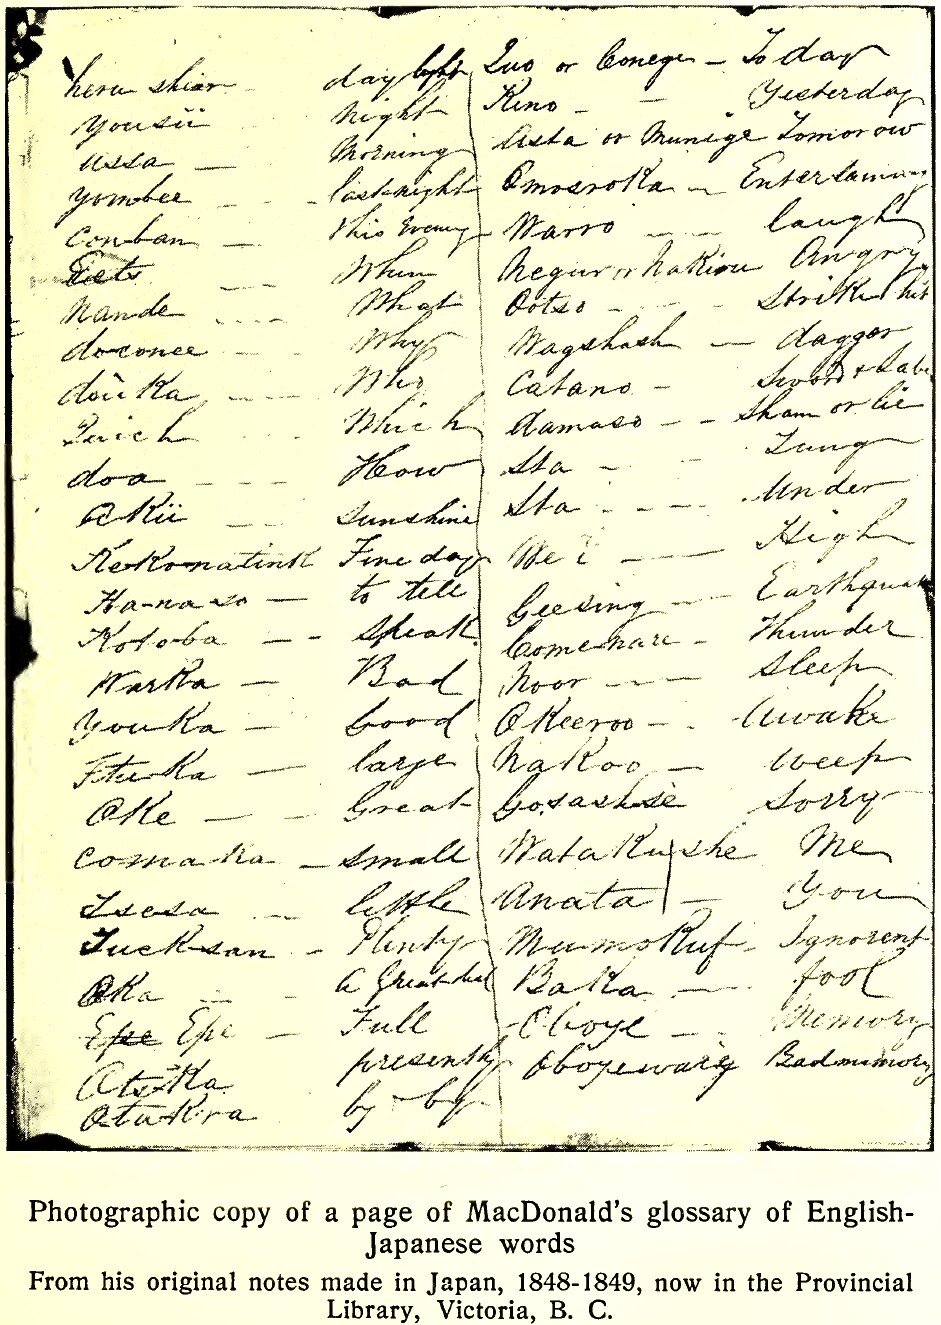 heru shiar daylight
yousii night
ussa Morning
yombee last night
conban this Evening
Eets When
Nande What
doconee Why
douka Who
Quich Which
doa How
okii sunshine
Kekonatink Fine day
Ha-na so to tell
Kotoba Speak
Warka Bad
Youka Good
Ftuka large
Oke Great
comaka small
Isesa little
Tucksan Plenty
Oka a Great deal
Epe Epe Full
Atska presently
Atukra by by
Quo or Conege To day
Kino Yesterday
Asta or Munige Tomorow
Omosroka Entertaining
Warro laugh
Negur or Nakirou Angry
Ootso Strike hit
Wagshash dagger
Catano Sword &
damaso Sham or lie
Sta Tung
Sta Under
High
Geesing Earthquake
Comenari Thunder
Noor Sleep
Okeeroo Awake
Nakoo weep
Gosashsie sorry
Watakushe Me
Anata You
Mumokuf Ignorent
Baka fool
Oboye Memory
Oboyewarig Badmimory
Photographic copy of a page of MacDonald's glossary of English-
Japanese words
From his original notes made in Japan, 1848-1849, now in the Provincial
Library, Victoria, B. C.